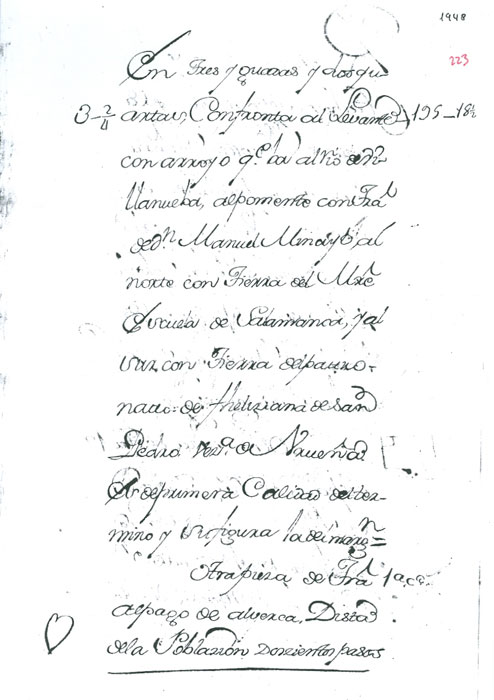 1948
223
En tres yguaas y dos qu
3-2/4 artas, Confronta al Levante, 195-18½
con arroyo q.e ba al rio de Vi
llanueba, al poniente con Trã
de d.n Manuel Minayo, al
norte con Tierra del Mre
Escuela de Salamanca, y al
sur con Tierra del patro-
nato de theliziana de San
Pedro vez.a de Nrueña
Es de primera Calidad del ter-
mino y su figura la del marg.n =
Otra pieza de Trã 1a. ca.
al pago de alverca, Dista
de la Poblazion doszientos pasos